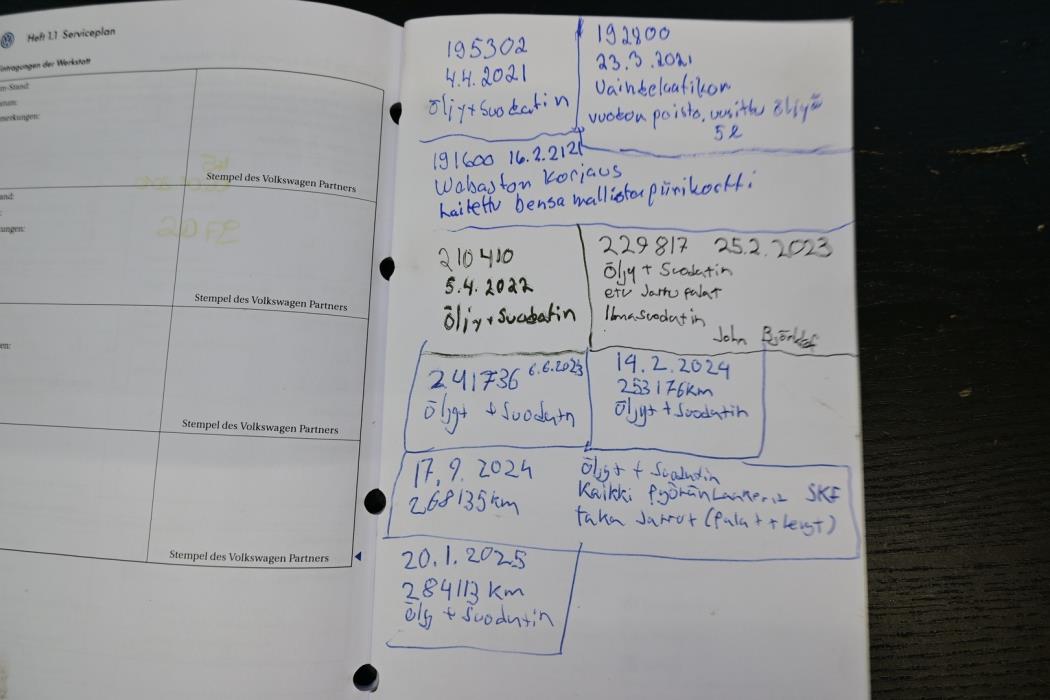 Heft 1.1 Serviceplan
intragungen der Werkstatt
m-Stand:
tum:
merkungen:
Stempel des Volkswagen Partners
and:
ungen:
Stempel des Volkswagen Partners
en:
Stempel des Volkswagen Partners
Stempel des Volkswagen Partners
195302
4.4.2021
Öljy+Suodatin
192800
23.3.2021
Vaihdelaatikon
vuodon poisto, uusittu öljyä
5l
191600 16.2.2121
Wabaston korjaus
Laitettu bensa malliston piirikortti
210410
5.4.2022
Öljy+Suodatin
229817 25.2.2023
Öljy + Suodatin
etu Jarru palat
Ilmasuodatin
John
241736 6.6.2023
Öljyt + Suodatin
14.2.2024
253176km
Öljyt + Suodatin
17.9.2024
268135km
Öljyt + Suodatin
Kaikki Pyörän Laakerit SKF
taka Jarrut (Palat + Levyt)
20.1.2025
284113 km
Öljy + Suodatin